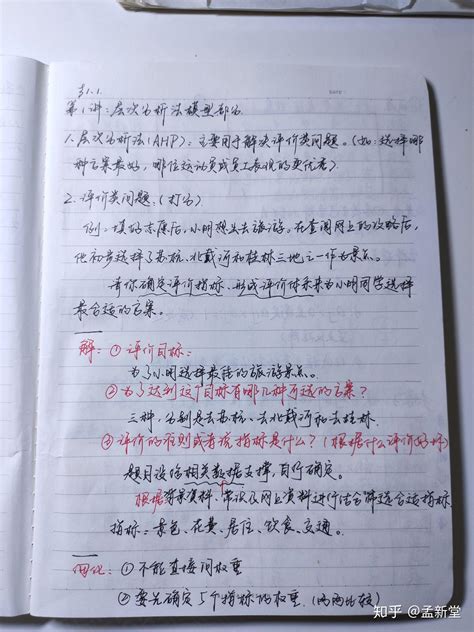 第1讲：层次分析法模型部分
1.层次分析法(AHP)：主要用于解决评价类问题。(如：选择哪
种方案最好，哪位运动员或员工表现的更优秀)
2.评价类问题.(打分)
例：填好志愿后，小明想去旅游。在查阅网上的攻略后，
他初步选择了苏杭、北戴河和桂林三地之一作为景点。
请你确定评价指标、形成评价体系来为小明同学选择
最合适的方案。
解：① 评价目标：
为了小明选择最佳的旅游景点。
② 为了达到这个目标有哪几种可选的方案？
三种，分别是去苏杭、去北戴河和去桂林.
③ 评价的准则或者说指标是什么？(根据什么评价好坏)
题目没给相关数据支撑，自行确定。
根据背景资料、常识及网上资料进行结合筛选合适指标.
指标：景色、花费、居住、饮食、交通。
① 不能直接问权重
② 要先确定5个指标的权重.(两两比较)
知乎 @孟新堂